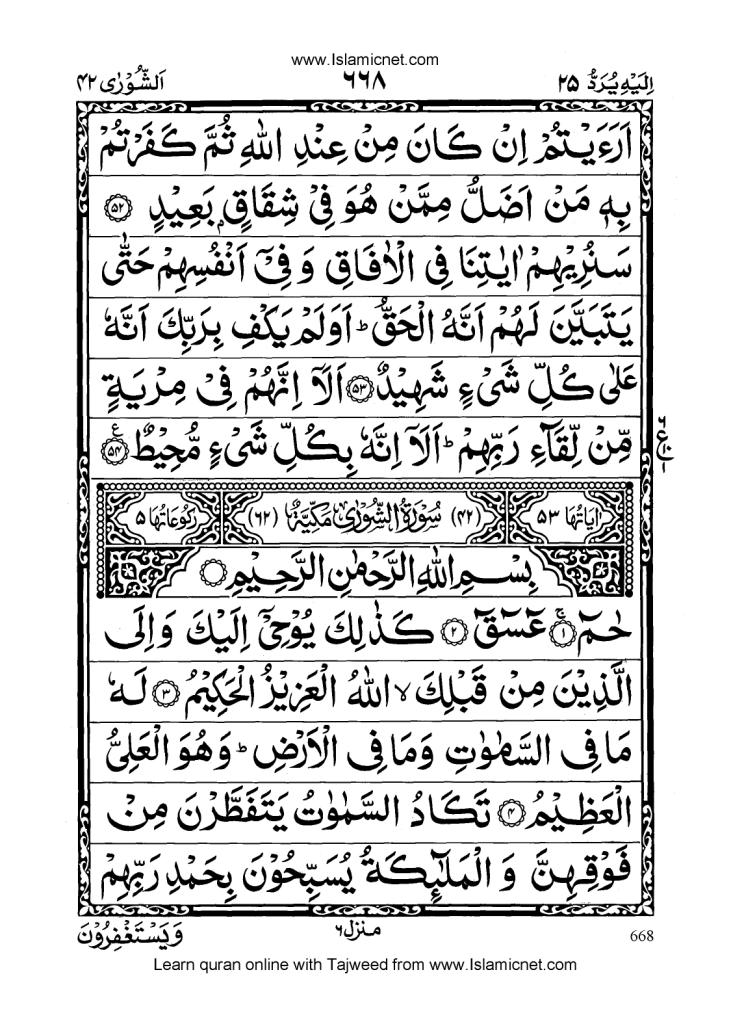 www.Islamicnet.com
اِلَيْهِ يُرَدُّ ٢٥ ٦٦٨ اَلشُّوْرٰى ٤٢
اَرَءَيْتُمْ اِنْ كَانَ مِنْ عِنْدِ اللّٰهِ ثُمَّ كَفَرْتُمْ
بِهٖ مَنْ اَضَلُّ مِمَّنْ هُوَ فِيْ شِقَاقٍۭ بَعِيْدٍ ٥٢
سَنُرِيْهِمْ اٰيٰتِنَا فِى الْاٰفَاقِ وَ فِيْۤ اَنْفُسِهِمْ حَتّٰى
يَتَبَيَّنَ لَهُمْ اَنَّهُ الْحَقُّ ؕ اَوَلَمْ يَكْفِ بِرَبِّكَ اَنَّهٗ
عَلٰى كُلِّ شَىْءٍ شَهِيْدٌ ٥٣ اَلَاۤ اِنَّهُمْ فِيْ مِرْيَةٍ
مِّنْ لِّقَآءِ رَبِّهِمْ ؕ اَلَاۤ اِنَّهٗ بِكُلِّ شَىْءٍ مُّحِيْطٌ ٥٤ ع
اٰيَاتُهَا ٥٣ (٤٢) سُوْرَةُ الشُّوْرٰى مَكِّيَّةٌ (٦٢) رُكُوْعَاتُهَا ٥
بِسْمِ اللّٰهِ الرَّحْمٰنِ الرَّحِيْمِ
حٰمٓ ١ عٓسٓقٓ ٢ كَذٰلِكَ يُوْحِيْۤ اِلَيْكَ وَاِلَى
الَّذِيْنَ مِنْ قَبْلِكَ ۙ اللّٰهُ الْعَزِيْزُ الْحَكِيْمُ ٣ لَهٗ
مَا فِى السَّمٰوٰتِ وَمَا فِى الْاَرْضِ ؕ وَهُوَ الْعَلِىُّ
الْعَظِيْمُ ٤ تَكَادُ السَّمٰوٰتُ يَتَفَطَّرْنَ مِنْ
فَوْقِهِنَّ وَ الْمَلٰٓئِكَةُ يُسَبِّحُوْنَ بِحَمْدِ رَبِّهِمْ
668 منزل ٦ وَيَسْتَغْفِرُوْنَ
Learn quran online with Tajweed from www.Islamicnet.com